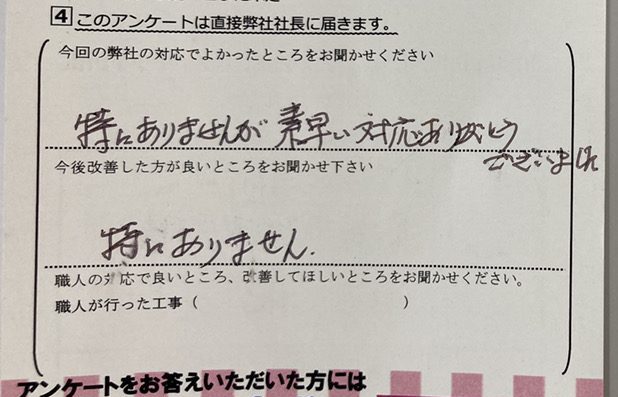 4 このアンケートは直接弊社社長に届きます。
今回の弊社の対応でよかったところをお聞かせください
特にありませんが 素早い対応ありがとう
ございました
今後改善した方が良いところをお聞かせ下さい
特にありません.
職人の対応で良いところ、改善してほしいところをお聞かせください。
職人が行った工事（　　　　　　　　　　　　）
アンケートをお答えいただいた方には